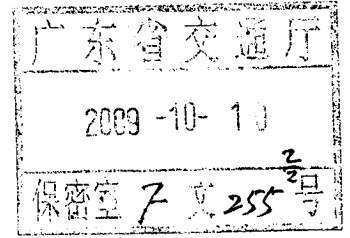 广东省交通厅
2009-10-10
保密室 7 文 255 2/2 号